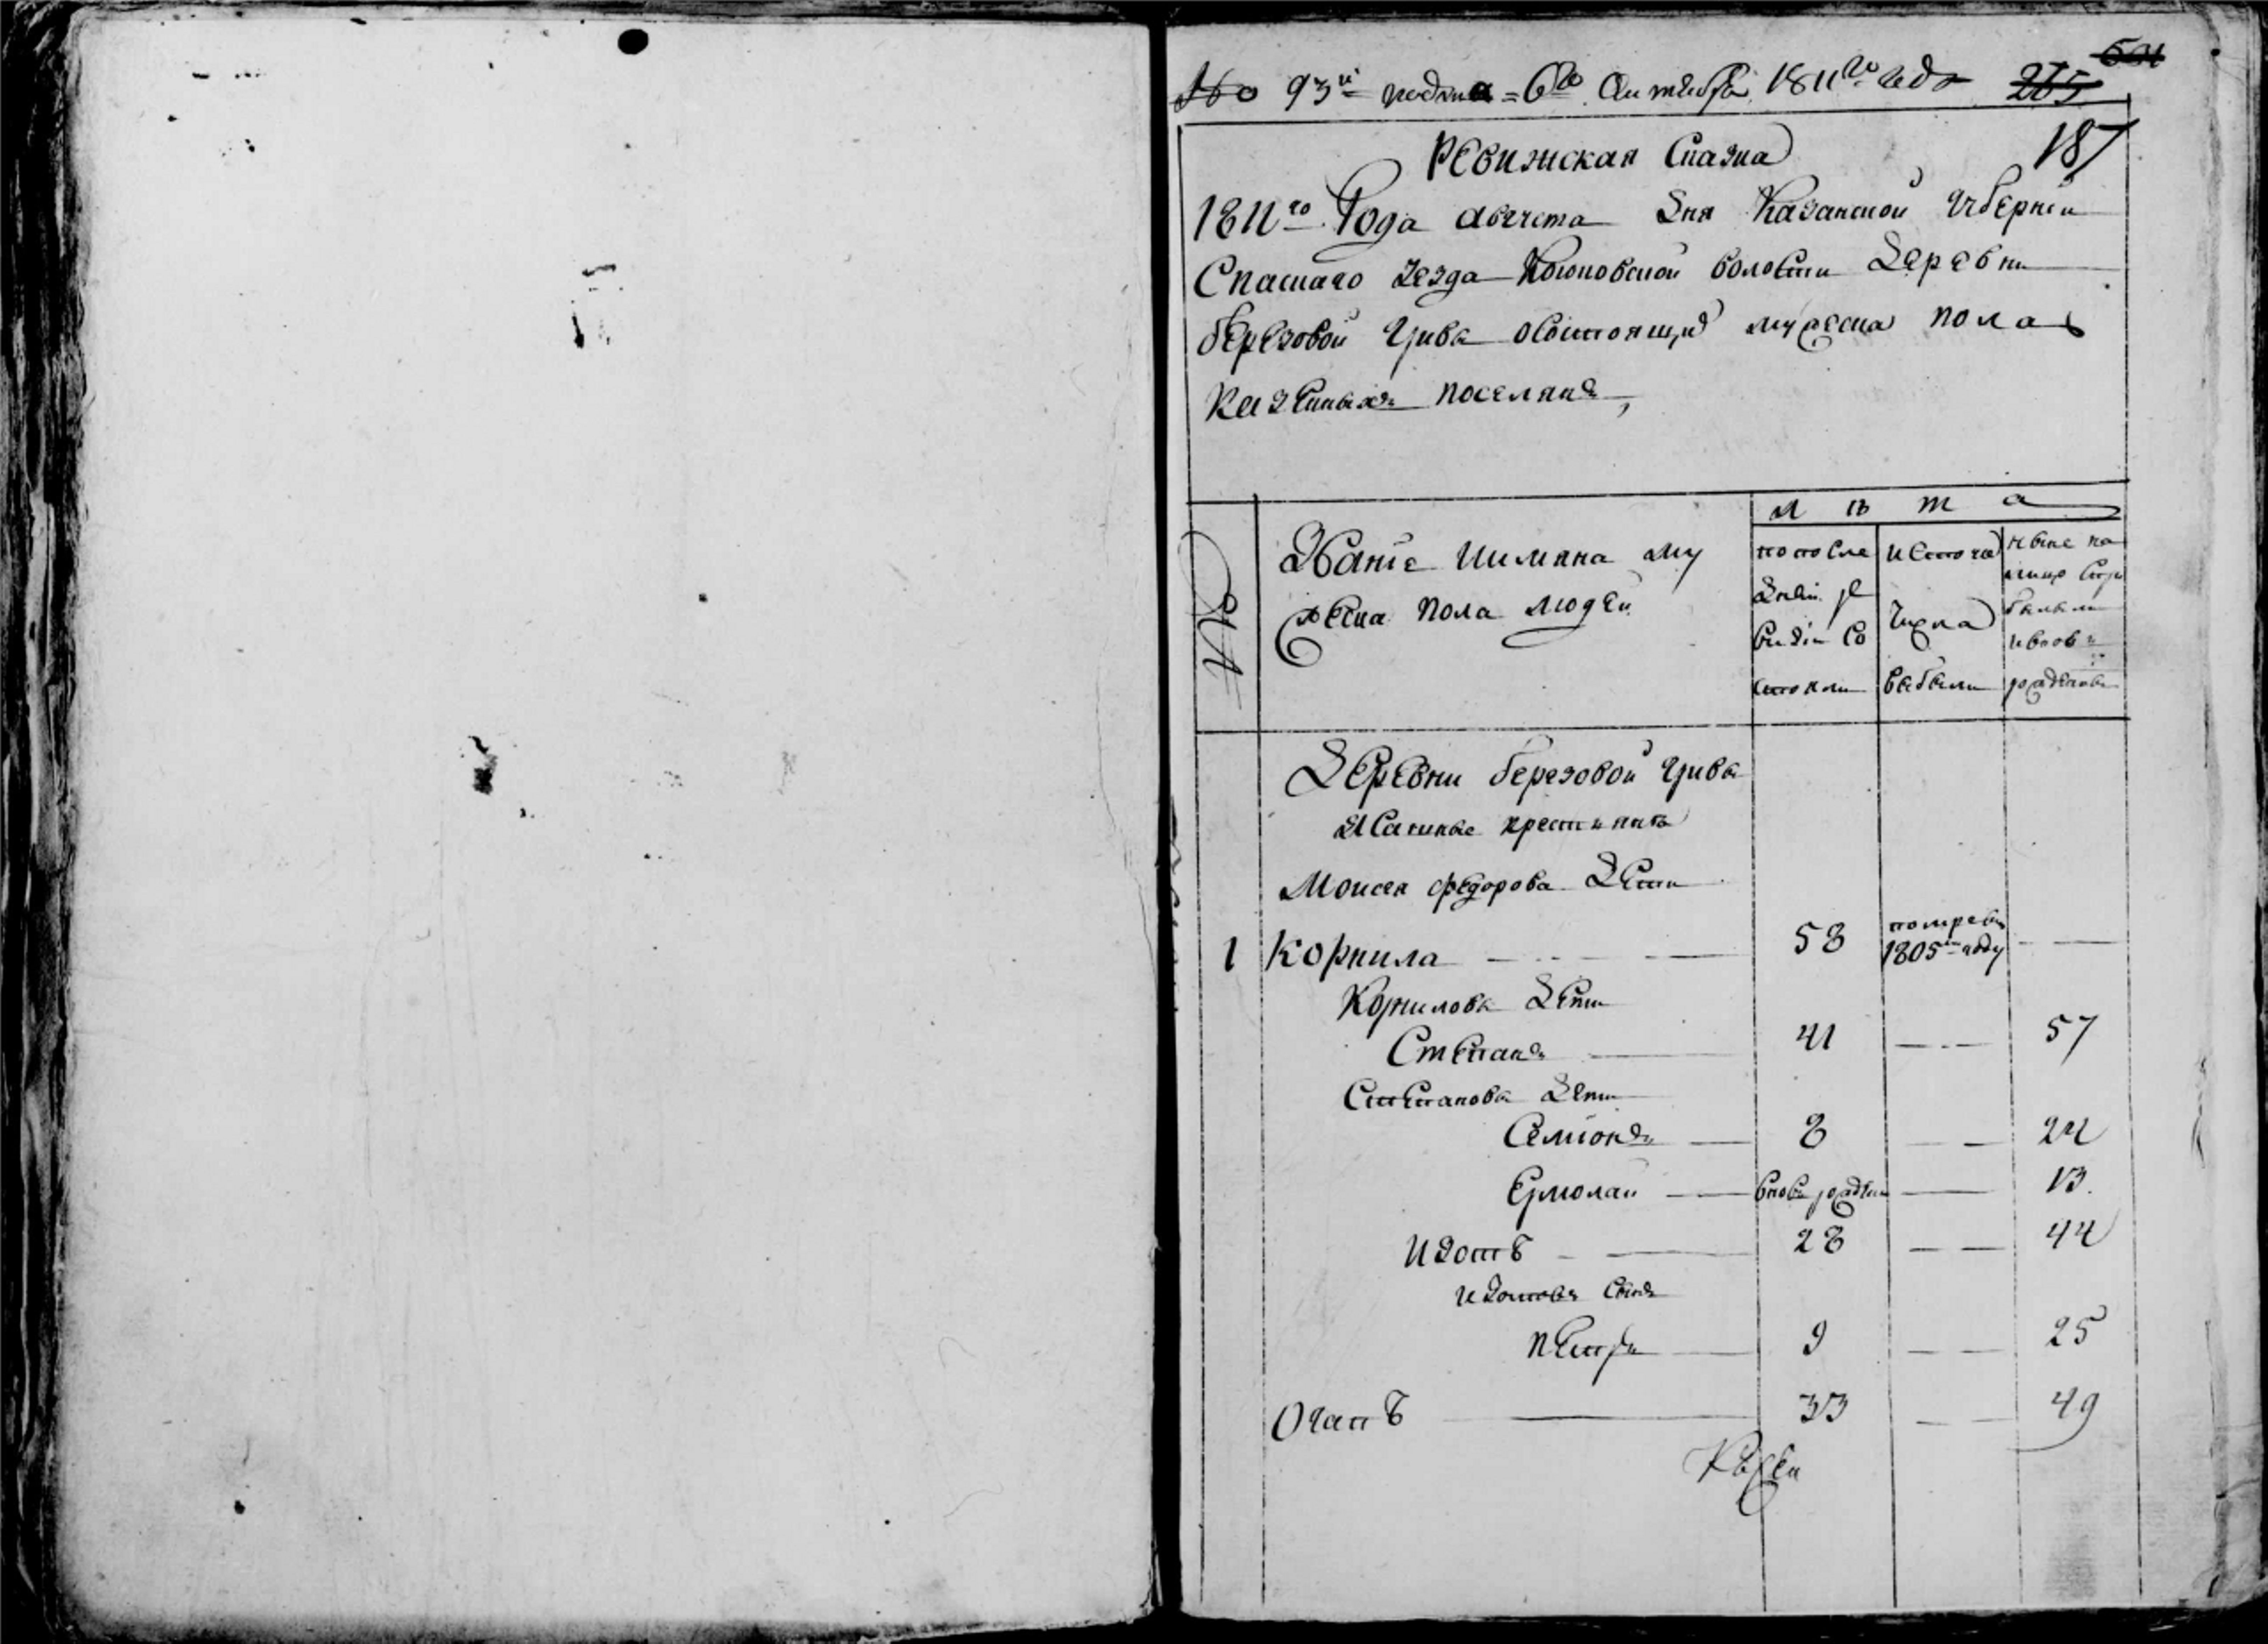 № 93й подана 6го Октября 1811го года 265
187
Ревижская Сказка
1811го Года августа дня Казанской губернiи
Спаскаго уезда волости деревни
березовой гривы осостоящих мужеска пола
казенных поселянъ,
лѣта
№
Званiе иимяна му
жеска пола людей
по после
дней ре
визiи со
стояли
исто го
числа
выбыли
ныне на
лицо съ при
былыми
и вновь
рожденны
Деревни березовой гривы
Ясашные крестьянъ
Моисея федорова дети
1 Корнила 58 помре въ 1805м году
Корниловы дети
Степанъ 41 57
Степановы дети
Семiонъ 8 24
Ермолай вновь рожден 13
Изотъ 28 44
Изотовъ сынъ
петръ 9 25
Осипъ 33 49